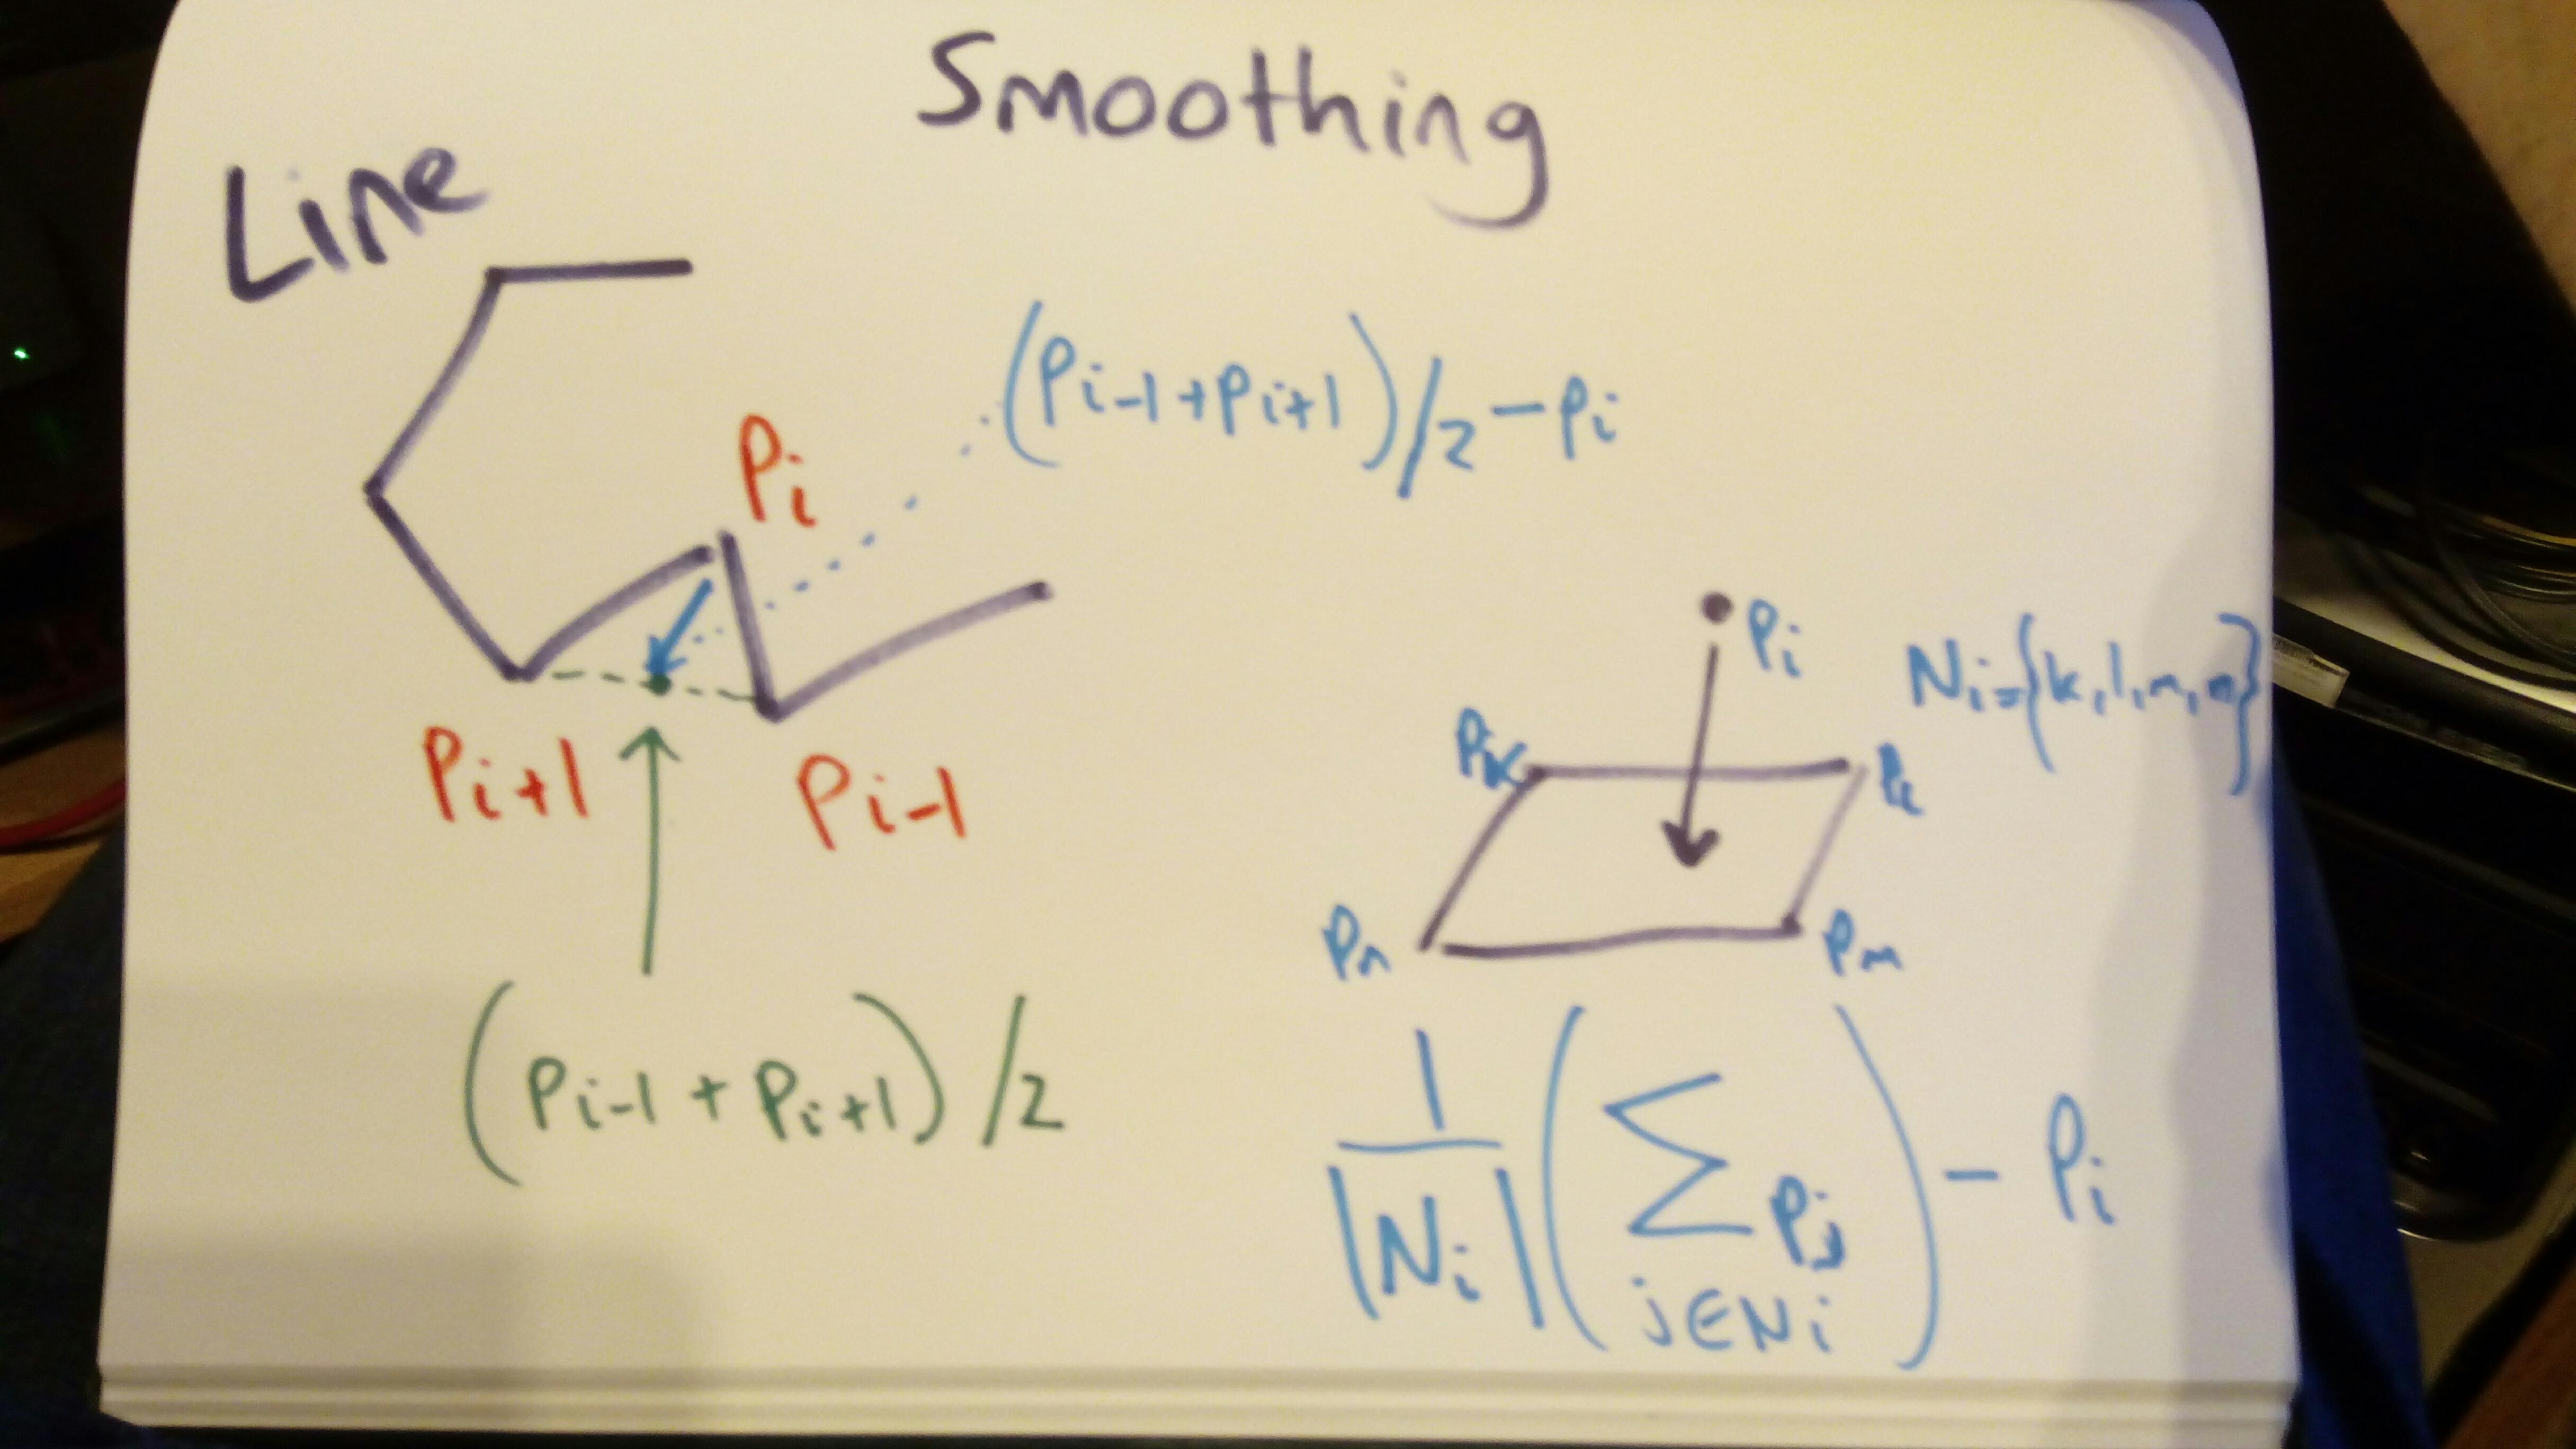 Smoothing
Line
(Pi-1+Pi+1)/2-Pi
Pi
Pi+1
Pi-1
(Pi-1 + Pi+1)/2
Pi
Ni={k,l,m,n}
Pk
Pl
Pn
Pm
1/|Ni| (∑ Pj) - Pi
j∈Ni